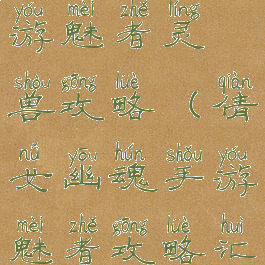 yóu mèi zhě líng
游魅者灵
shòu gōng lüè qiàn
兽攻略（倩
nǚ yōu hún shǒu yóu
女幽魂手游
mèi zhě gōng lüè huì
魅者攻略汇